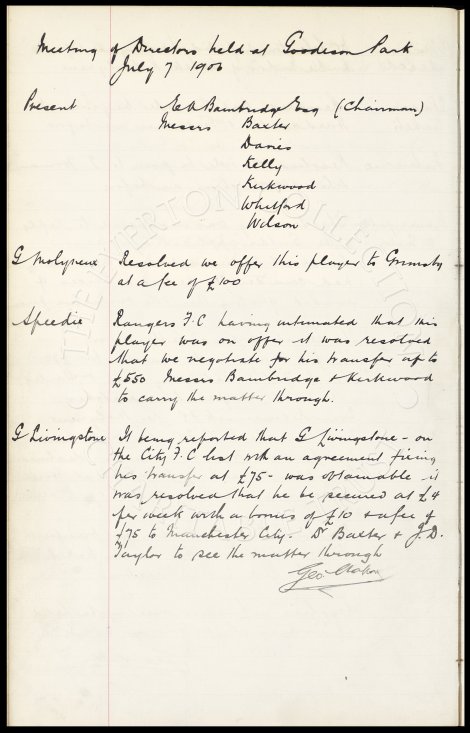 Meeting of Directors held at Goodison Park
July 7 1906
Present E A Bainbridge Esq (Chairman)
Messrs Baxter
Davies
Kelly
Kirkwood
Whitford
Wilson
G Molyneux Resolved we offer this player to Grimsby
at a fee of £100
Speedie Rangers F.C having intimated that this
player was on offer it was resolved
that we negotiate for his transfer up to
£550 Messrs Bainbridge & Kirkwood
to carry the matter through.
G Livingstone It being reported that G Livingstone - on
the City F.C list with an agreement fixing
his transfer at £75 - was obtainable it
was resolved that he be secured at £4
per week with a bonus of £10 & a fee of
£75 to Manchester City. Dr Baxter & J.D.
Taylor to see the matter through
Geo.
THE EVERTON COLLECTION